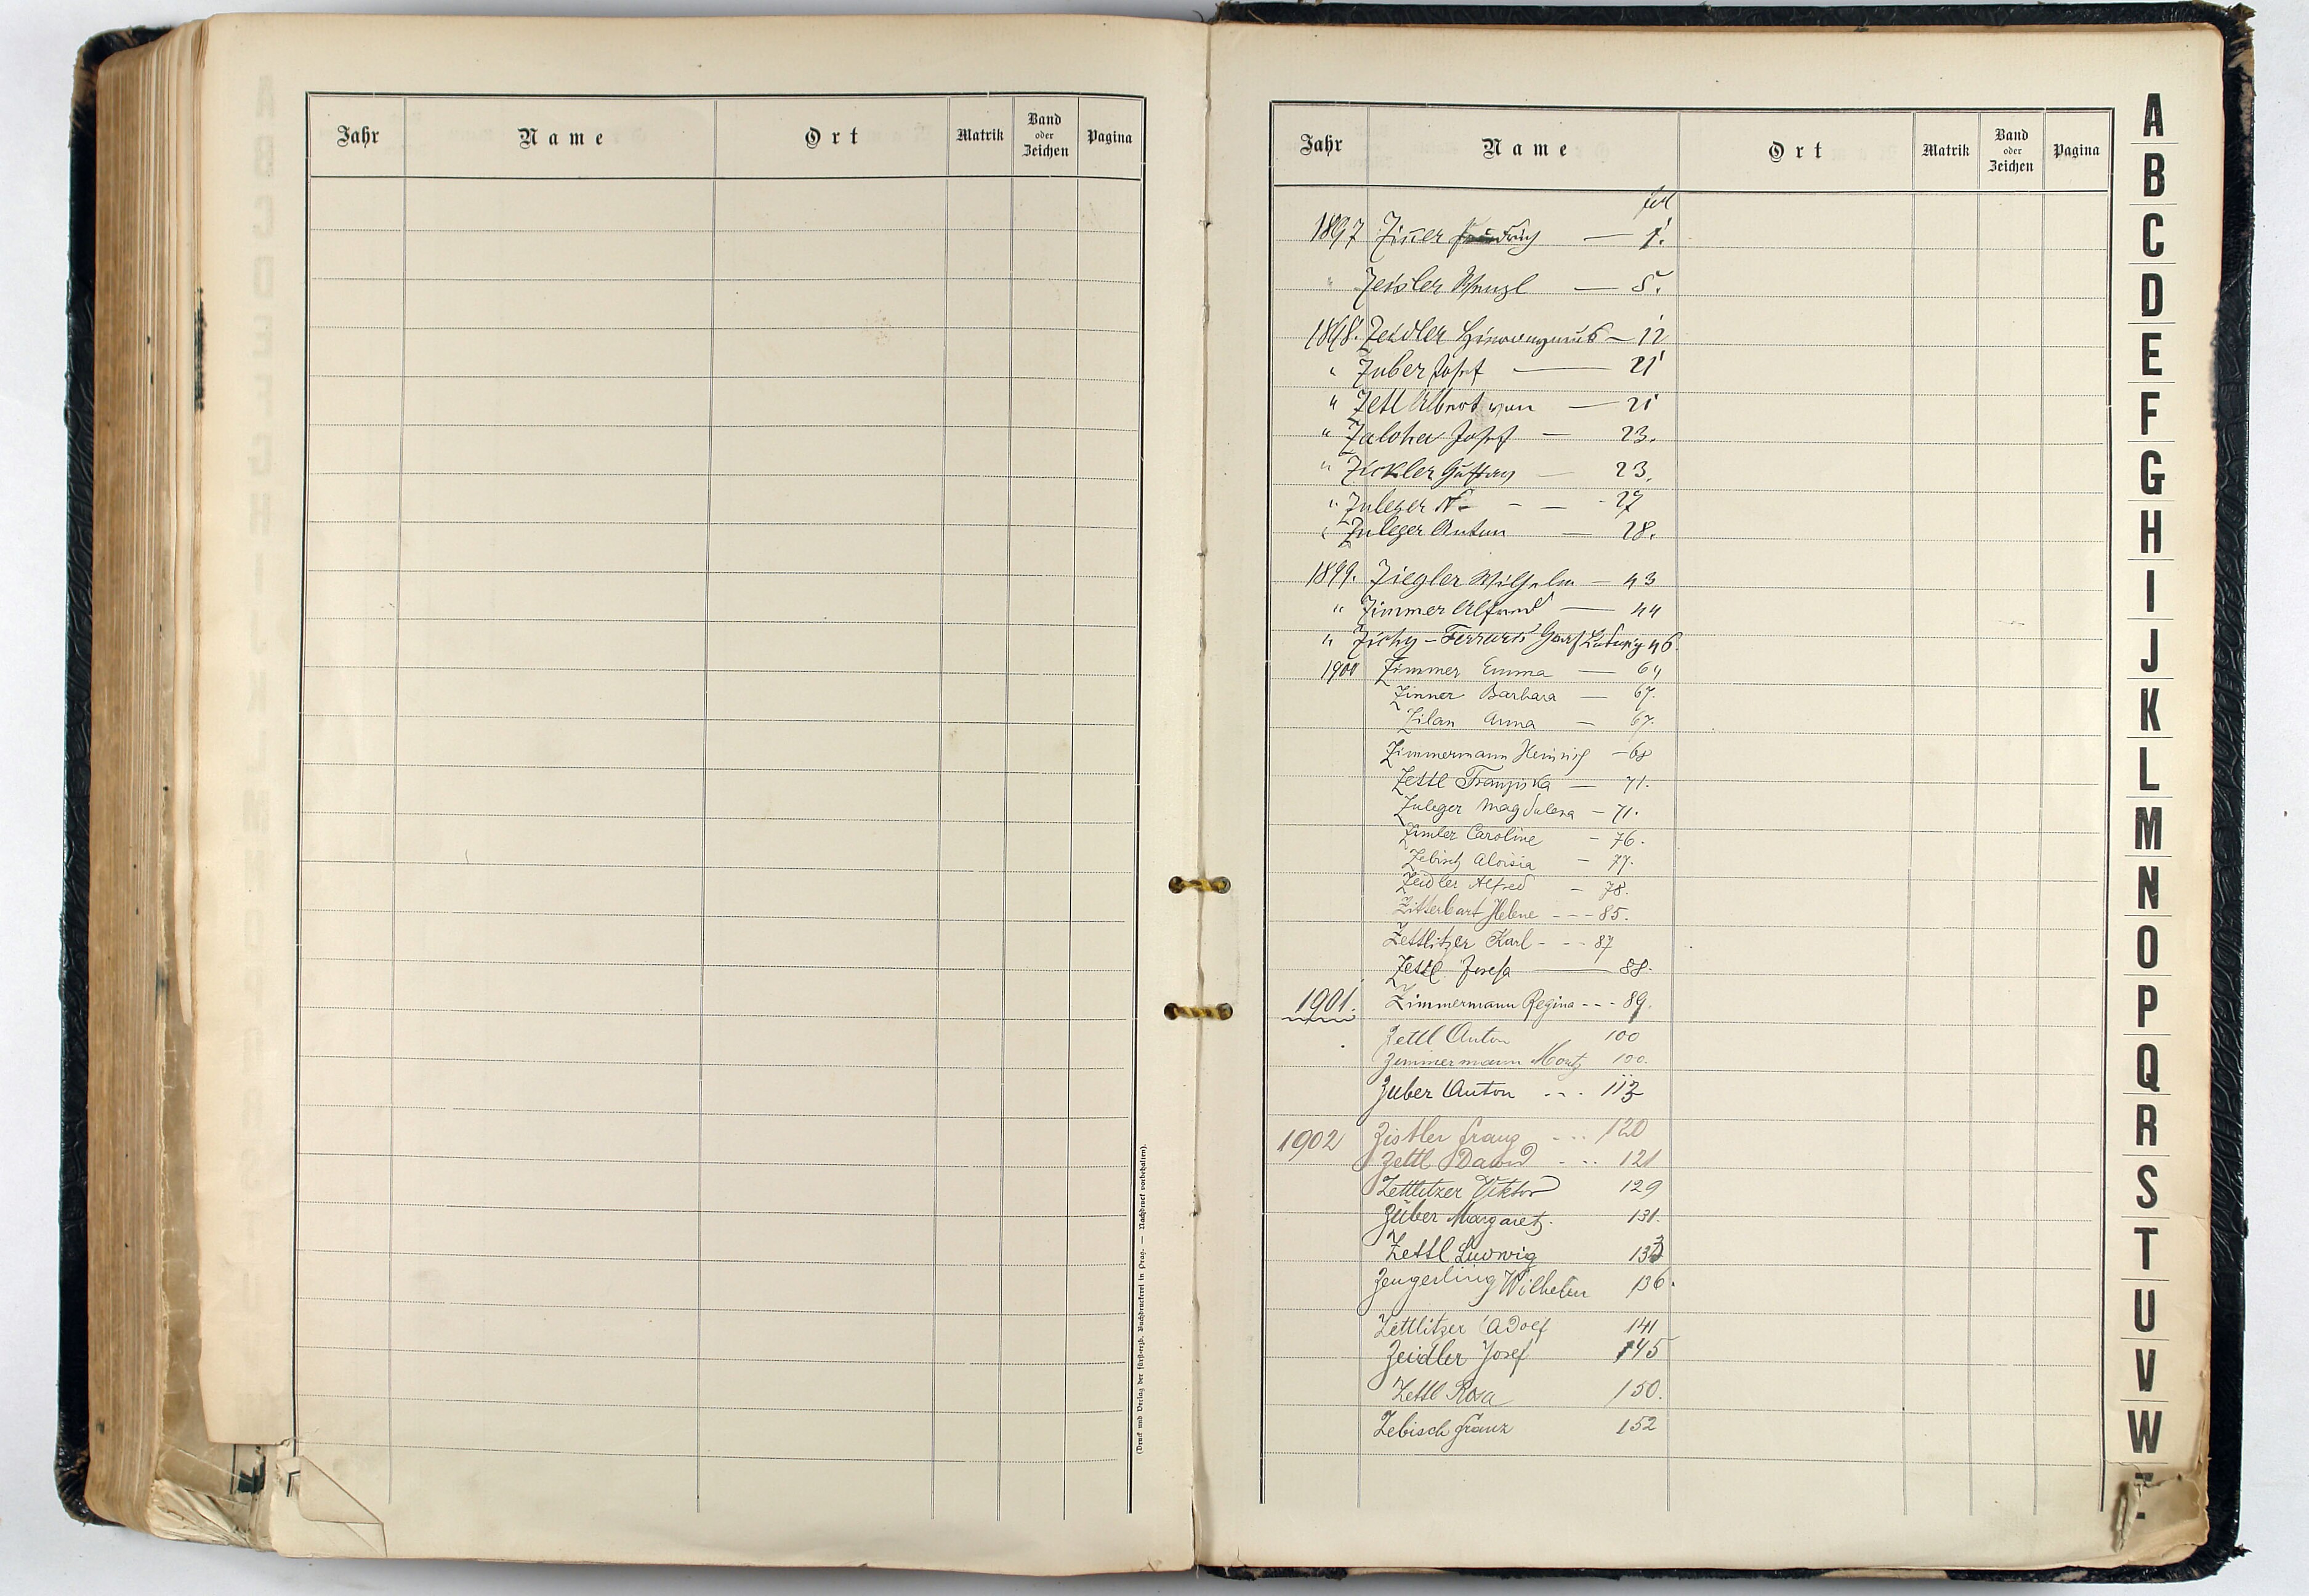 Jahr Name Ort Matrik Band oder Zeichen Pagina
(Druck und Verlag der fürsterzb. Buchdruckerei in Prag. — Nachdruck vorbehalten).
Jahr Name Ort Matrik Band oder Zeichen Pagina
fol
1897 Ziner — 1.
" Zeisler Wenzl — 5.
1898. Zeidler — 12
" Zuber Josef — 21
" Zetl Albert von — 21
" Zaloha Josef — 23.
" Zickler Gustav — 23.
" Zuleger N. - — - 27
" Zuleger Anton — 28.
1899. Ziegler Wilhelm — 43
" Zimmer Alfred — 44
" Zichy - Ferraris Graf Ludwig 46.
1900 Zimmer Emma — 64
Zinner Barbara — 67.
Zilan Anna — 67.
Zimmermann Heinrich — 68
Zettl Franziska — 71.
Zuleger Magdalena — 71.
Zimler Caroline — 76.
Zebisch Aloisia — 77.
Zeidler Alfred — 78.
Zitterbart Helene - - - 85.
Zettlitzer Karl - - - 87
Zettl Josefa — 88.
1901. Zimmermann Regina - - - 89.
Zettl Anton 100
Zimmermann Moritz 100.
Zuber Anton - - . 113
1902 Zistler Franz - - - 120
Zettl David - - . 121
Zettlitzer Viktor 129
Züber Margaret. 131.
Zettl Ludwig 133
Zengerling Wilhelm 136.
Zettlitzer Adolf 141
Zeidler Josef 145
Zettl Rosa 150.
Zebisch Franz 152
A
B
C
D
E
F
G
H
I
J
K
L
M
N
O
P
Q
R
S
T
U
V
W